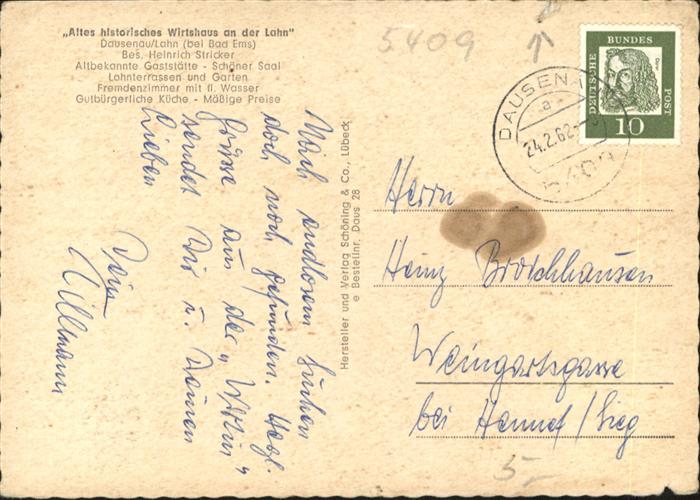 „Altes historisches Wirtshaus an der Lahn"
Dausenau/Lahn (bei Bad Ems)
Bes. Heinrich Stricker
Altbekannte Gaststätte - Schöner Saal
Lahnterrassen und Garten
Fremdenzimmer mit fl. Wasser
Gutbürgerliche Küche - Mäßige Preise
Nach endlosem Suchen
doch noch gefunden. Herzl.
Grüsse aus der „Wirtin"
sendet Dir u. Deinen
Lieben
Dein
Willmann
Hersteller und Verlag Schöning & Co., Lübeck
e Bestellnr. Daus 28
5409
DAUSENAU
a
24.2.62
5409
DEUTSCHE
BUNDES
POST
Dürer
10
Herrn
Heinz Broichhausen
Weingartsgasse
bei Hennef/Sieg
5-